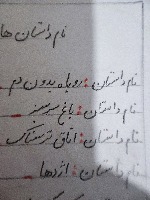 نام داستان ها
نام داستان: روباه بدون دم
نام داستان: باغ سرسبز
نام داستان: اتاق ترسناک
نام داستان: اژدها